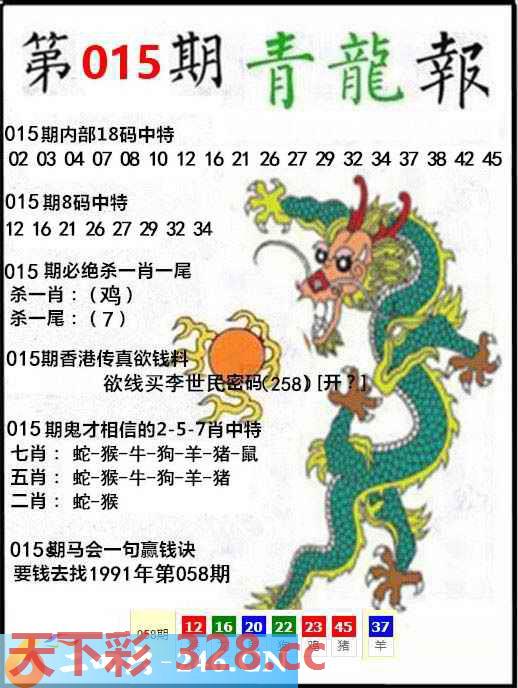 第015期青龍報
015期内部18码中特
02 03 04 07 08 10 12 16 21 26 27 29 32 34 37 38 42 45
015期8码中特
12 16 21 26 27 29 32 34
015期必绝杀一肖一尾
杀一肖：（鸡）
杀一尾：（7）
015期香港传真欲钱料
欲线买李世民密码(258)[开？]
015期鬼才相信的2-5-7肖中特
七肖：蛇-猴-牛-狗-羊-猪-鼠
五肖：蛇-猴-牛-狗-羊-猪
二肖：蛇-猴
015期马会一句赢钱诀
要钱去找1991年第058期
058期 12 16 20 22 23 45 37
鸡 猪 羊
天下彩-328.cc